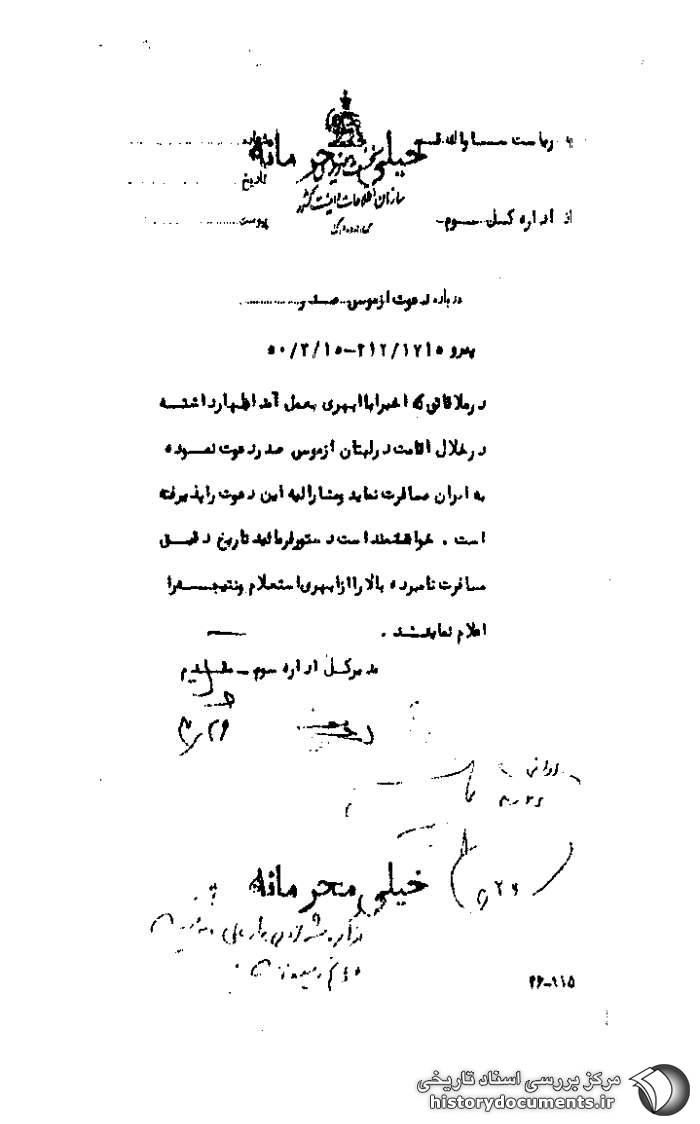 به ریاست ساواک قم
شماره
خیلی محرمانه
نخست وزیری
تاریخ
سازمان اطلاعات و امنیت کشور
از اداره کل سوم
پیوست
درباره دعوت از موسی صدر
پیرو ۳۱۲/۱۷۱۵-۵۰/۳/۱۵
در ملاقاتی که اخیرا با ابهری بعمل آمد اظهار داشته
در خلال اقامت در لبنان از موسی صدر دعوت نموده
به ایران مسافرت نماید و مشارالیه این دعوت را پذیرفته
است . خواهشمند است دستور فرمائید تاریخ دقیق
مسافرت نامبرده بالا را از ابهری استعلام و نتیجه را
اعلام نمایند .
مدیر کل اداره سوم - مقدم
خیلی محرمانه
۲۶
۳۶-۱۱۵
مرکز بررسی اسناد تاریخی
historydocuments.ir